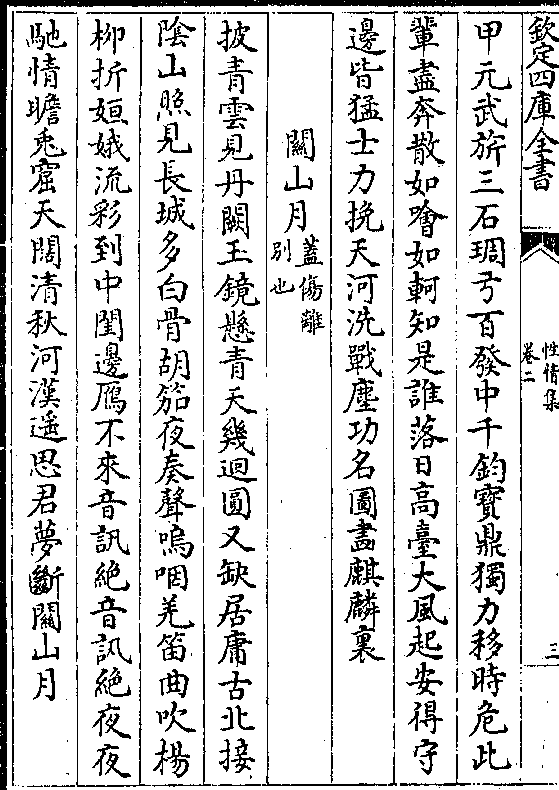 欽定四庫全書
性情集
卷二
三
甲元武旂三石琱弓百發中千鈞寶鼎獨力移時危此
輩盡奔散如噲如軻知是誰落日高臺大風起安得守
邊皆猛士力挽天河洗戰塵功名圖畫麒麟裏
關山月蓋傷離
別也
披青雲見丹闕玉鏡懸青天幾迴圓又缺居庸古北接
陰山照見長城多白骨胡笳夜奏聲嗚咽羌笛曲吹楊
柳折姮娥流彩到中閨邊鴈不來音訊絶音訊絶夜夜
馳情瞻兎窟天闊清秋河漢遥思君夢斷關山月